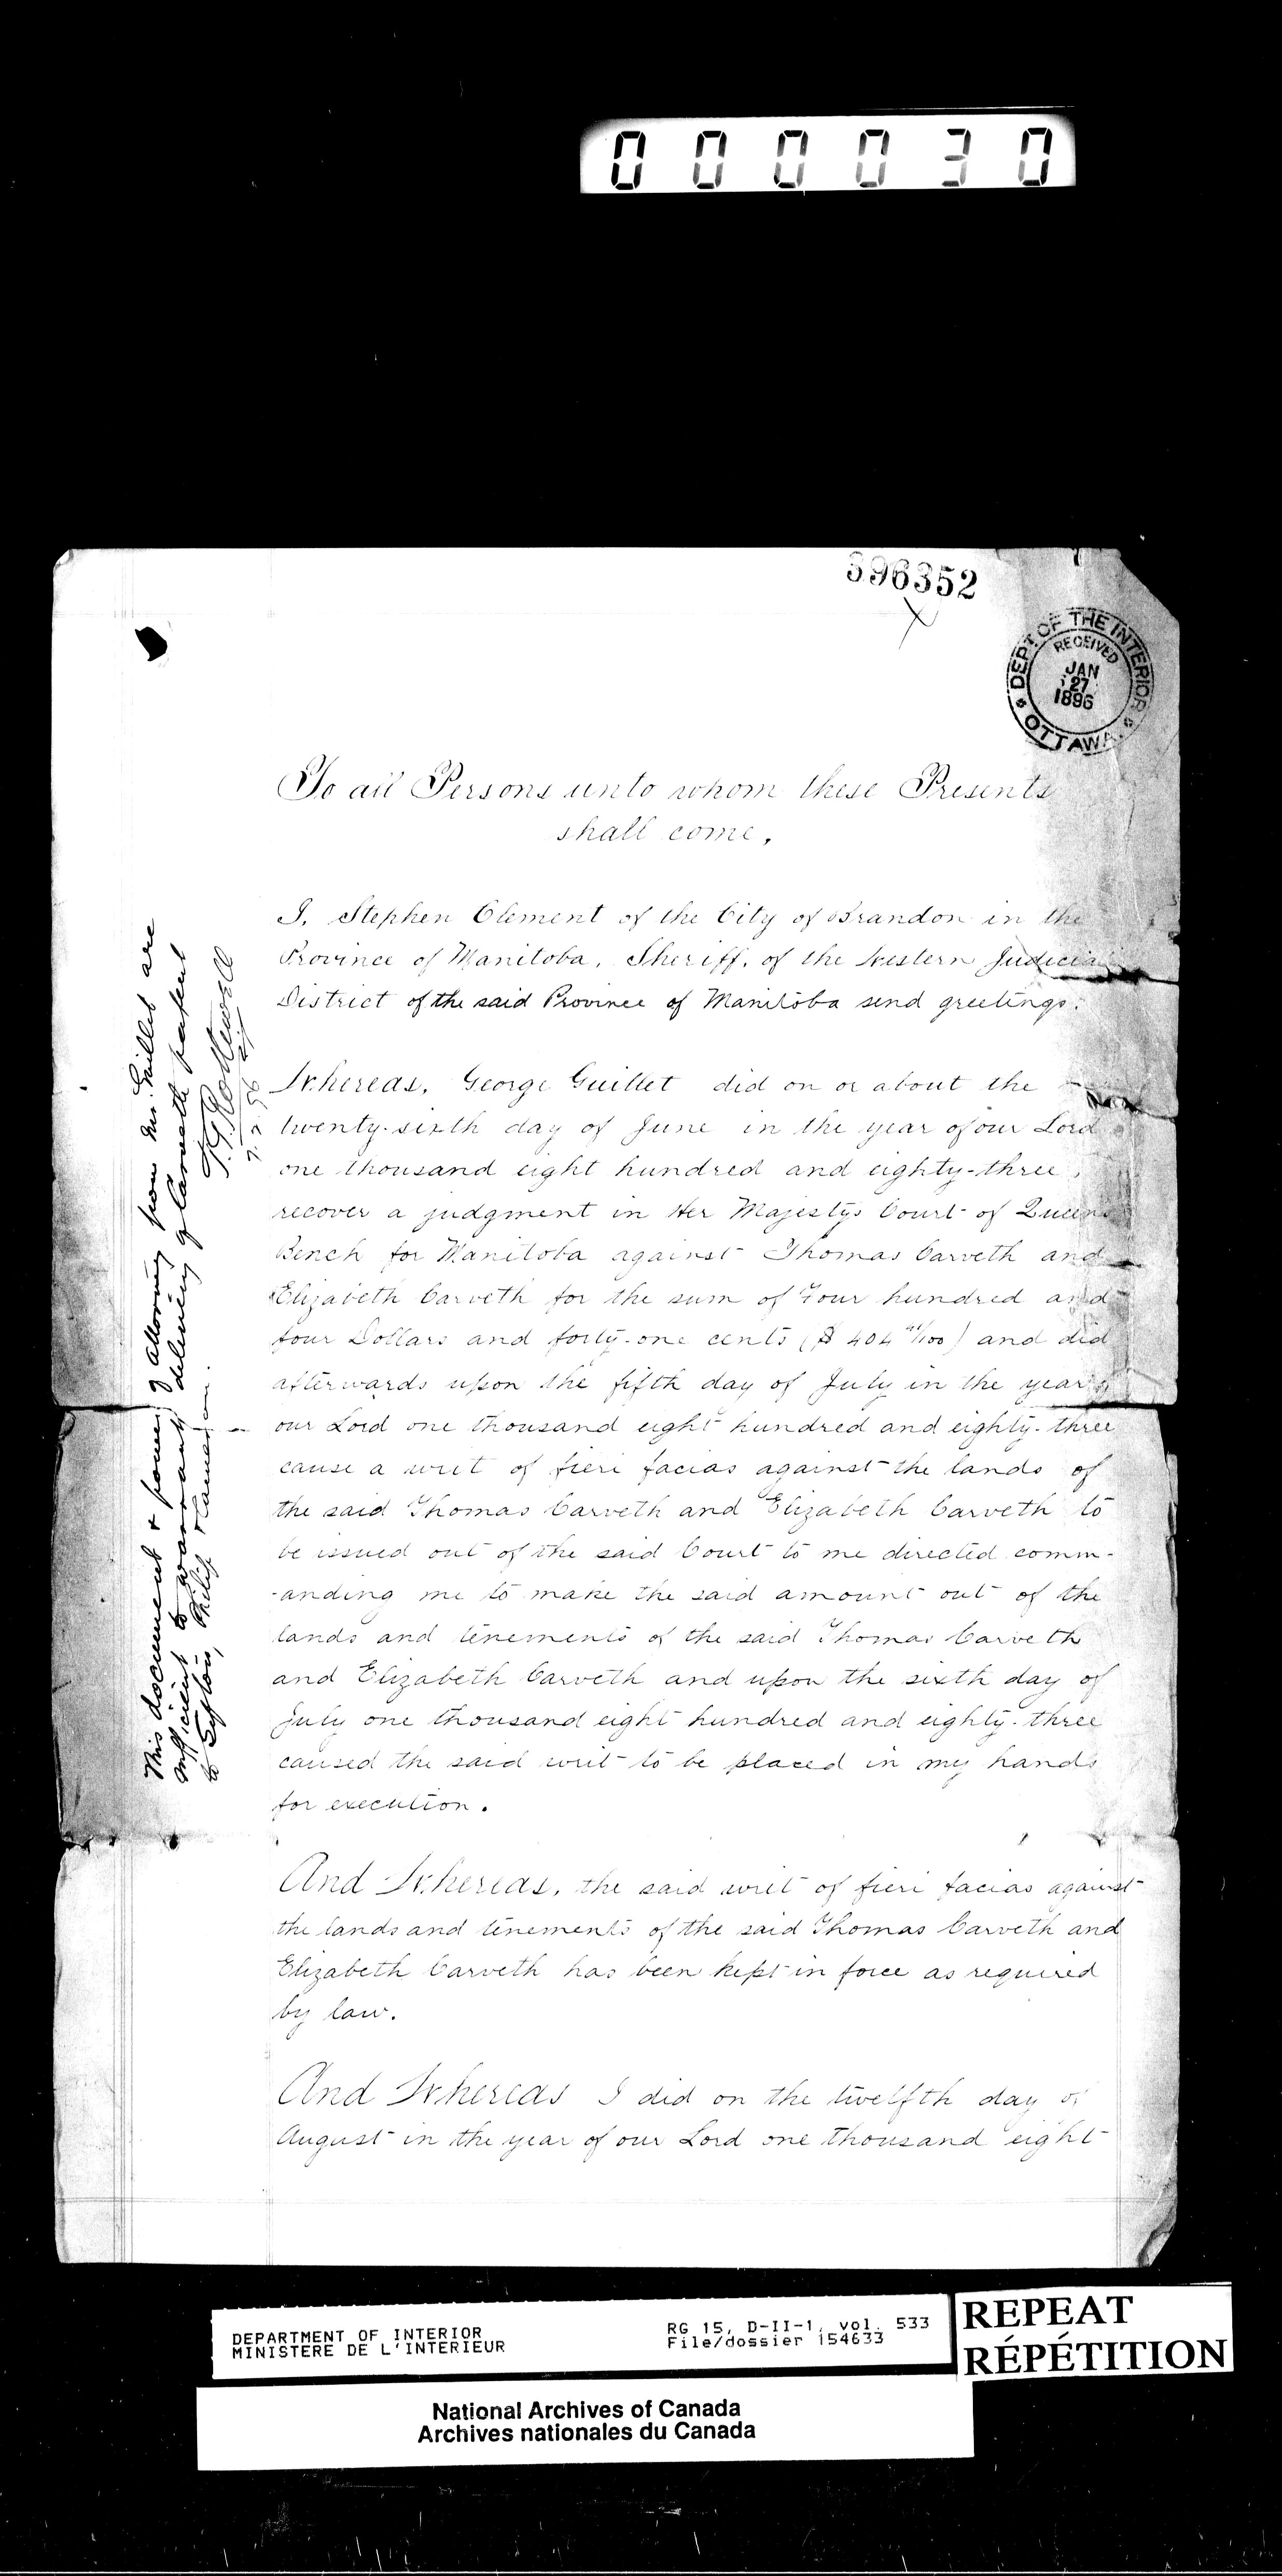 000030
396352
DEPT. OF THE INTERIOR
RECEIVED
JAN
27
1896
OTTAWA
To all Persons unto whom these Presents
shall come,
I, Stephen Clement of the City of Brandon in the
Province of Manitoba, Sheriff, of the Western Judicial
District of the said Province of Manitoba send greetings.
Whereas, George Guillet did on or about the
twenty-sixth day of June in the year of our Lord
one thousand eight hundred and eighty-three,
recover a judgment in Her Majestys Court of Queens
Bench for Manitoba against Thomas Carveth and
Elizabeth Carveth for the sum of Four hundred and
four Dollars and forty-one cents ($404 41/100) and did
afterwards upon the fifth day of July in the year of
our Lord one thousand eight hundred and eighty-three
cause a writ of fieri facias against the lands of
the said Thomas Carveth and Elizabeth Carveth to
be issued out of the said Court to me directed comm-
-anding me to make the said amount out of the
lands and tenements of the said Thomas Carveth
and Elizabeth Carveth and upon the sixth day of
July one thousand eight hundred and eighty-three
caused the said writ to be placed in my hands
for execution.
And Whereas, the said writ of fieri facias against
the lands and tenements of the said Thomas Carveth and
Elizabeth Carveth has been kept in force as required
by law.
And Whereas I did on the twelfth day of
August in the year of our Lord one thousand eight
This document & power of attorney from Mr. Guillet are
sufficient to warrant delivery of Carveth patent
to Sifton, Philip & Cameron.
T.G. Rothwell
7.2.96
DEPARTMENT OF INTERIOR
MINISTERE DE L'INTERIEUR
RG 15, D-II-1, vol. 533
File/dossier 154633
REPEAT
RÉPÉTITION
National Archives of Canada
Archives nationales du Canada